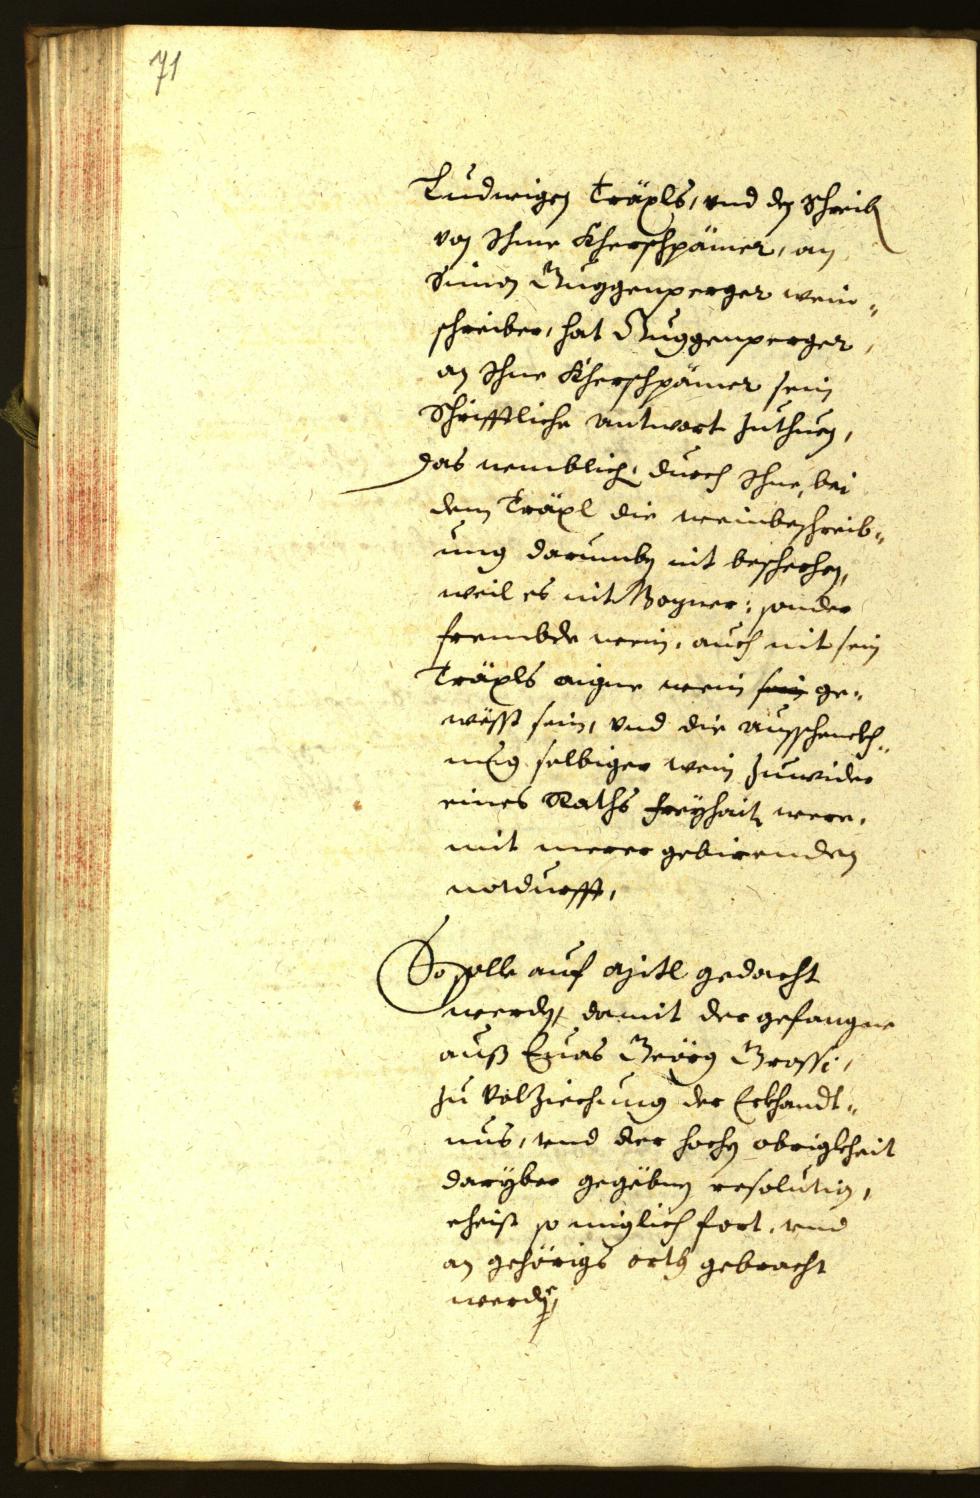 71
Ludwigen Träxls, vnd den schreiben
von Ihme Kherschpämer, an
Simon Guggenperger wein„
schreiber, hat Guggenperger,
an Ihne Kherschpämer sein
Schrifftliche antwort zuthuen,
das nemblich, durch Ihne, bei
dem Träxl die weinbeschreib„
ung darumben nit beschechen,
weil es nit Bozner: sonder
frembde wein, auch nit sein
Träxls aigne wein sein ge„
wësst sein, vnd die ausschenckh„
nung selbiger wein zuwider
eines Raths freÿhait, were,
mit merer gebirenden
notdurfft,
So solle auf mitl gedacht
werden, damit der gefangne
auß Georg Grossi,
zu volziechung der Erkhandt„
nus, vnd der hochen obrigkheit
darÿber gegëbnen resolution,
eheist so miglich fort, vnd
an gehörigs orth gebracht
werden,